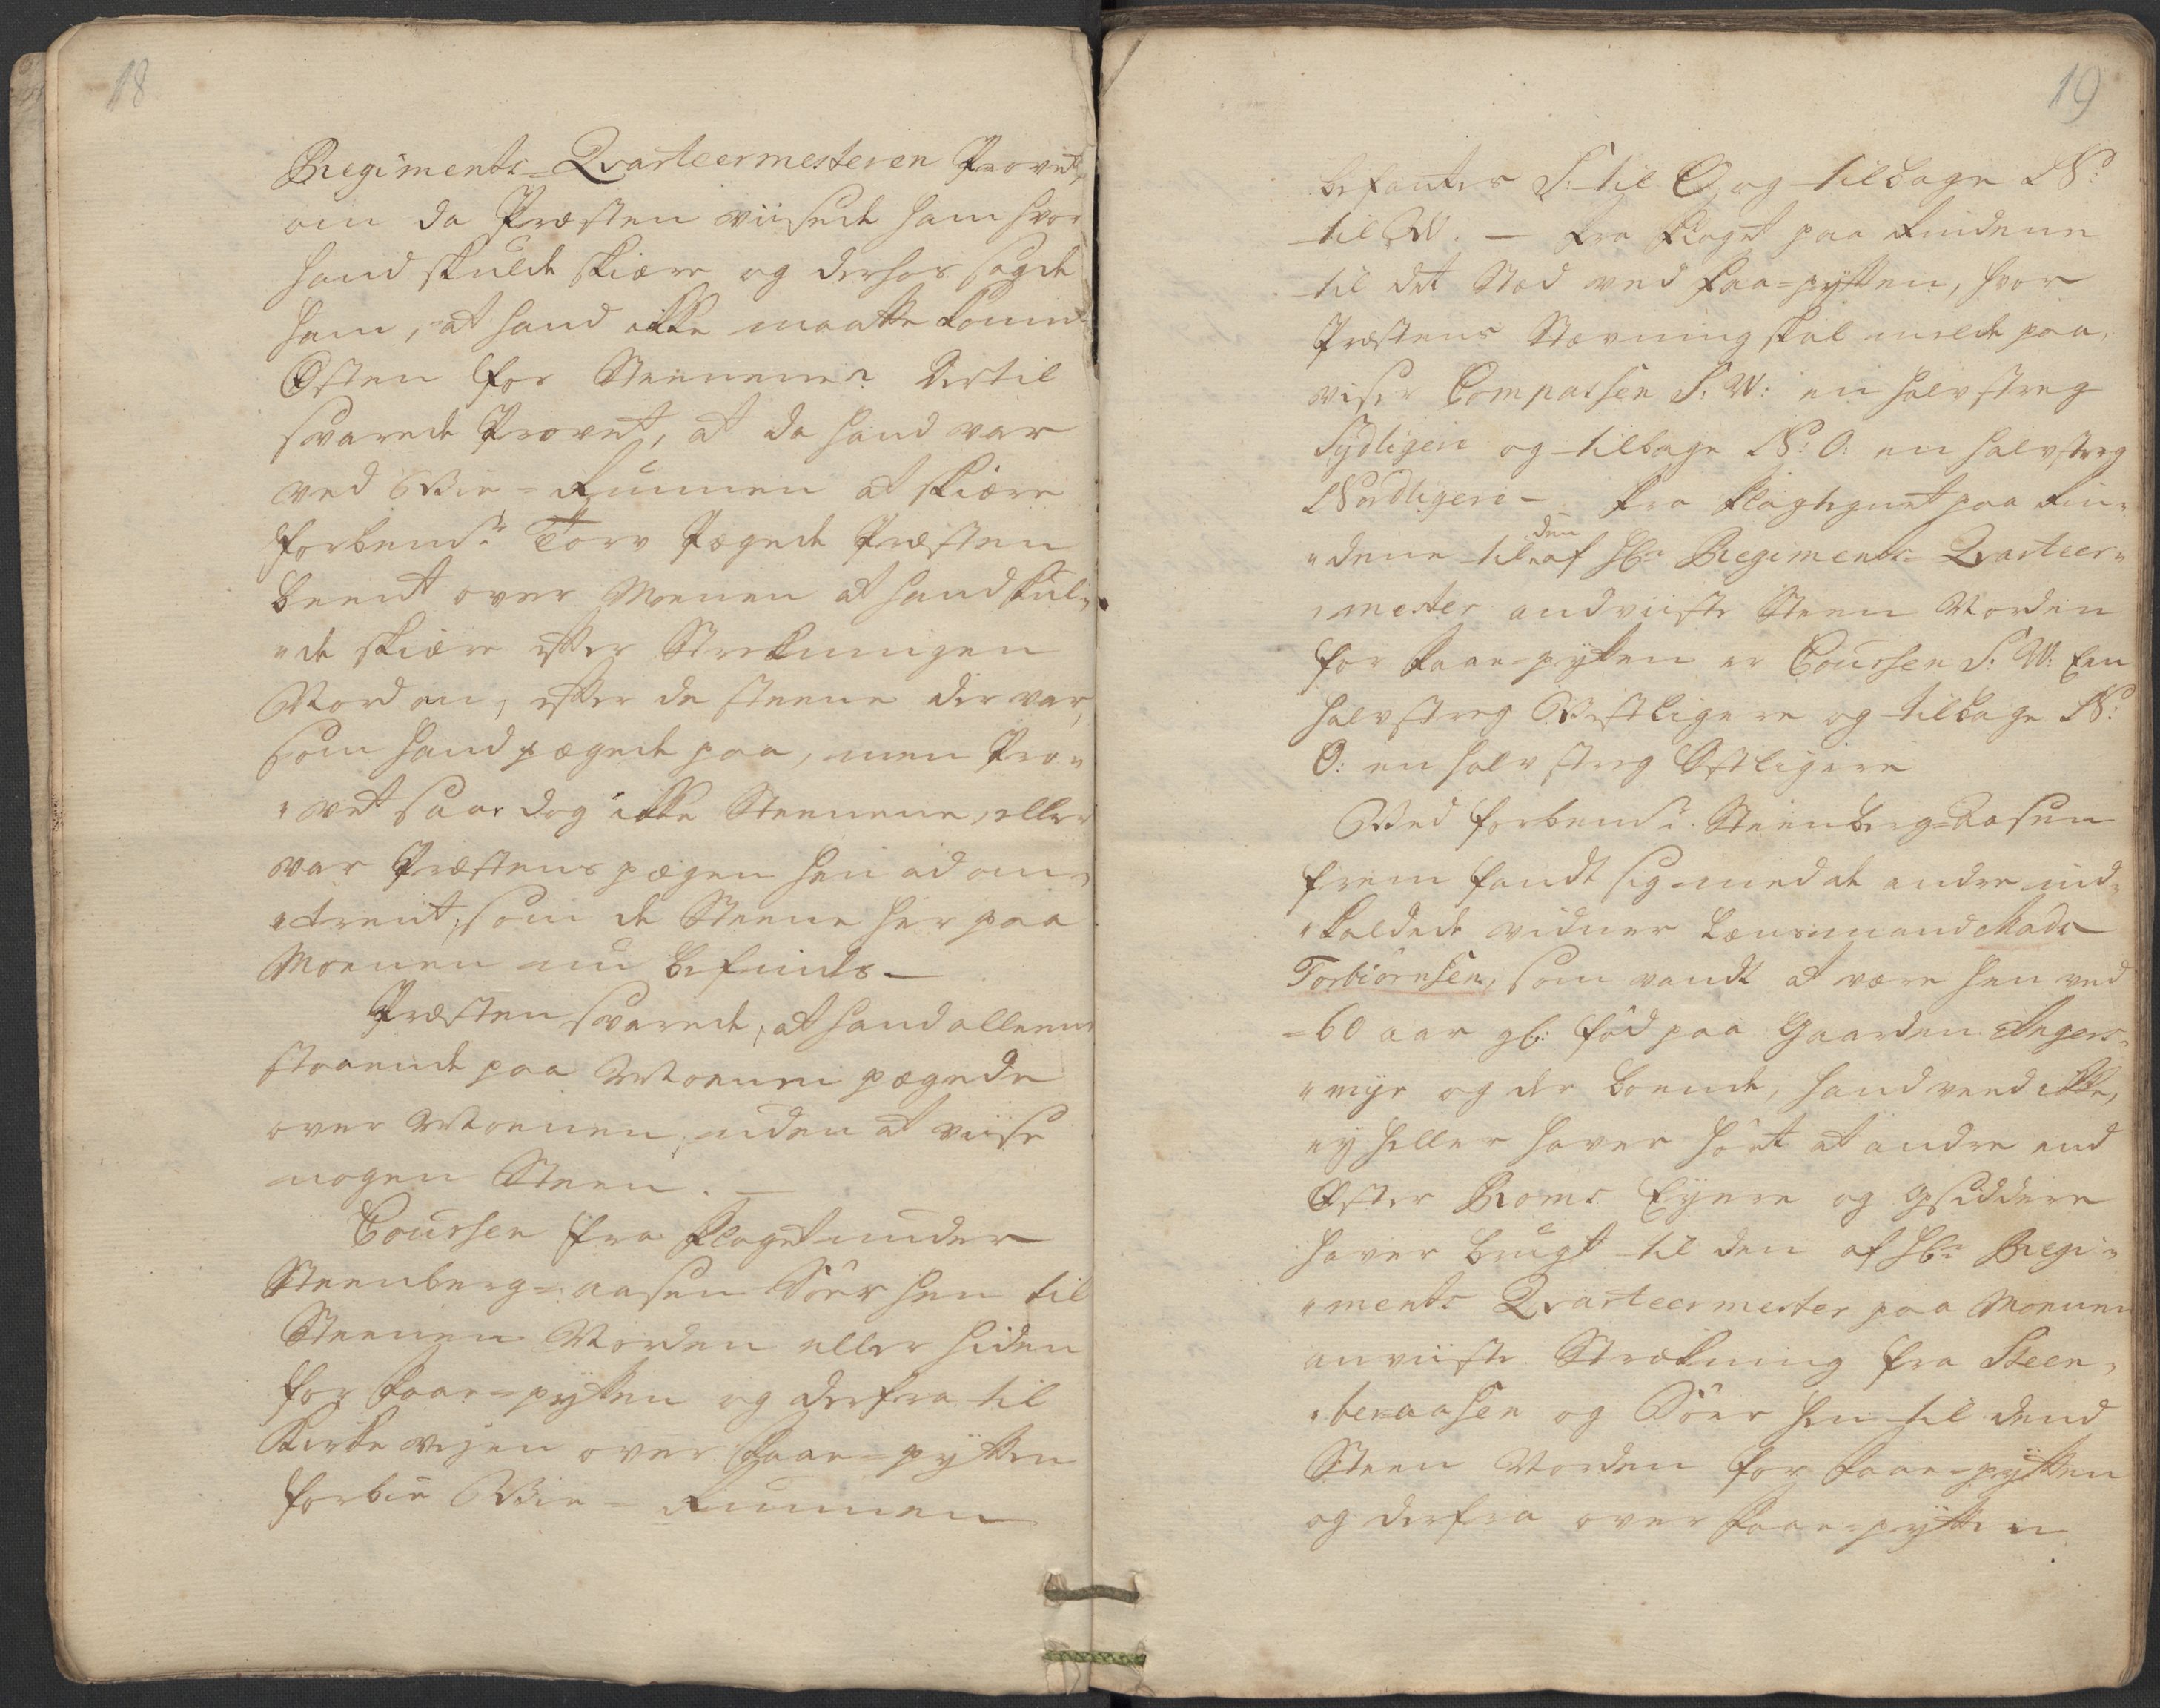 18
Regiments-Qvarteermesteren Provet,
om da Præsten viisede ham hvor
hand skulde skiære og derhos sagde
ham, at hand ikke maatte komme
Østen for Steenene? Dertil
svarede Provet, at da hand var
ved Viie-Rumen at skiære
forbemte Torv Pægede Præsten
beent over Moenen at hand skul-
"de skiære efter Strekningen
Nord om, efter de steene der var,
som hand pægede paa, men Pro-
"vet saae dog ikke Steenene, eller
var Præstens pægen hen ad om-
"trent, som de Steene her paa
Moenen nu befindes.
Præsten svarede, at hand alleene
staaende paa Moenen pægede
over Moenen, uden at viise
nogen Steen. —
Coursen fra Klaget under
Steenberg-aasen Søer hen til
Steenen Norden eller hiden
for Kaae-pytten og derfra til
Kirke vejen over Kaae-pytten
forbie Viie-Rumen
19
befantes S: til O, og tilbage N:
til W. — Fra Klaget paa Rindene
til det Stæd ved Kaae-pytten, hvor
Præstens Stævning skal melde paa,
viser Compassen S: W: en halv streg
Sydligere og tilbage N: O: en halv streg
Nordligere — Fra Klagtegnet paa Rin-
"dene til den af Hr: Regiments-Qvarteer-
"mester andviiste Steen Norden
for Kaae-pytten er Coursen S: W: Een
halv streg Vestligere og tilbage N:
O: en halv streg Østligere
Ved forbemte Steenberg-Aasen
frem fandt sig med de andre ind-
"kaldede vidner Lænsmand Mads
Torbiørnsen, som vandt at være hen ved
60 aar gl: fød paa Gaarden Anger-
"myr og der boende, hand veed ikke,
ey heller haver hørt at andre end
Øster Roms Eyere og Opsiddere
haver brugt til den af Hr: Regi-
"ments Qvarteermester paa Moenen
anviiste Strækning fra Steen-
"beraasen og Søer hen til dend
Steen Norden for Kaae-pytten
og derfra over Kaae-pytten